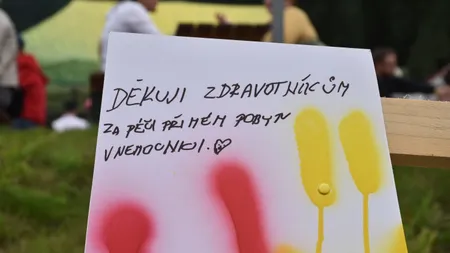 DĚKUJI ZDRAVOTNÍKŮM
ZA PÉČI PŘI MÉM POBYTU
V NEMOCNICI. ♡